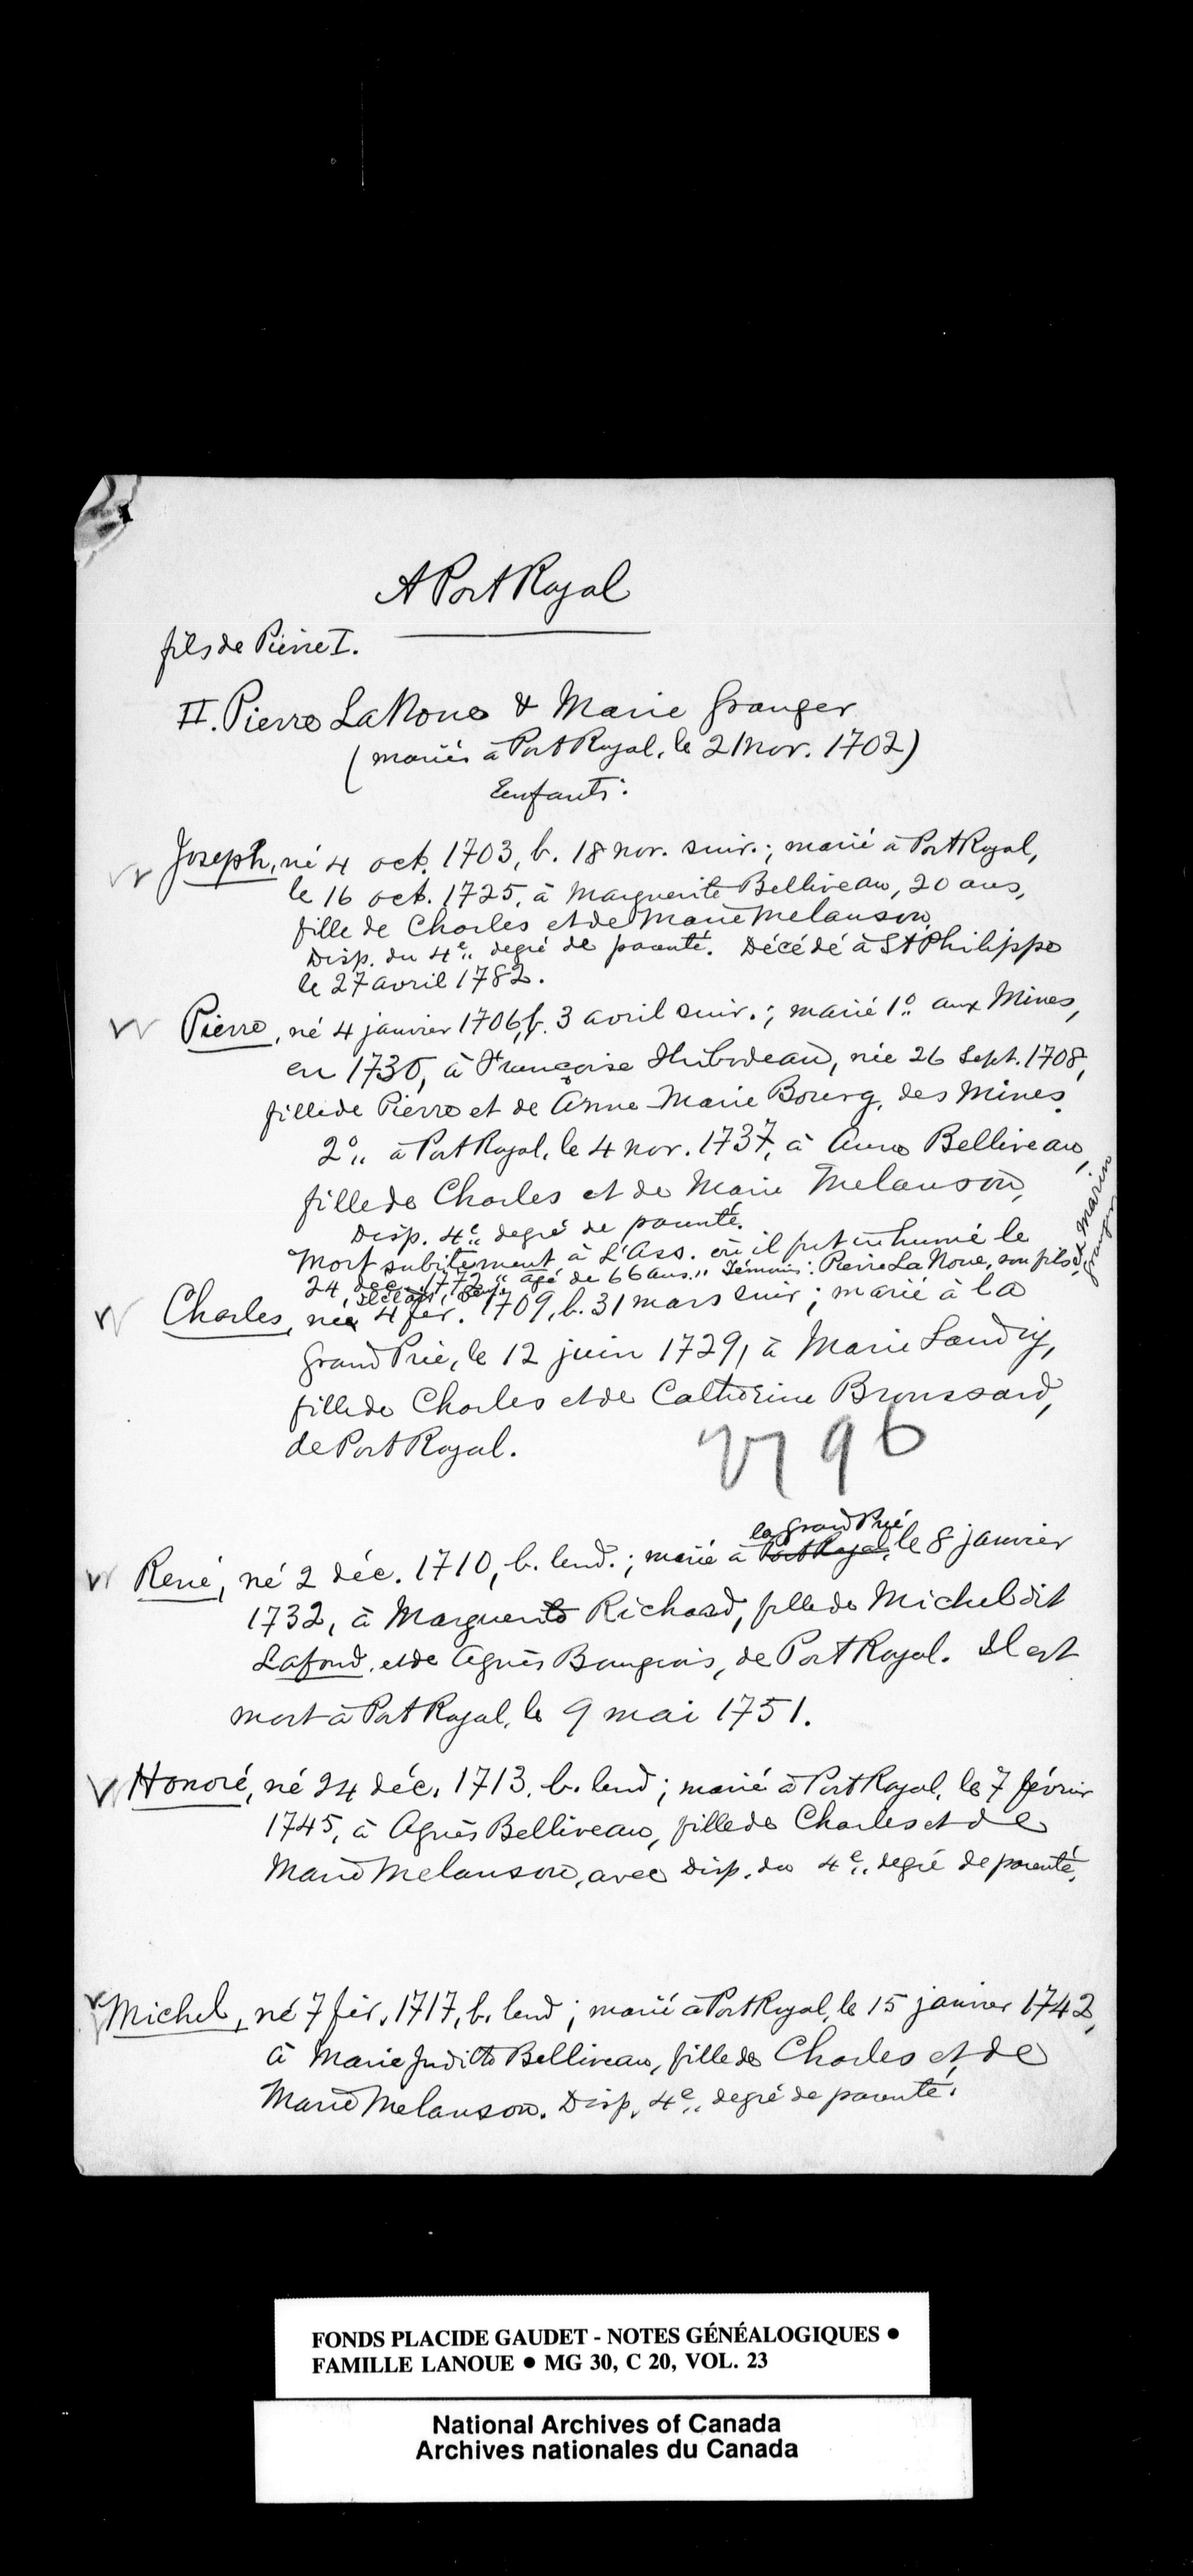 A Port Royal
fils de Pierre I.
II. Pierre LaNoue & Marie Granger
(mariés à Port Royal, le 21 nov. 1702)
Enfants:
Joseph, né 4 oct. 1703, b. 18 nov. suiv.; marié à Port Royal,
le 16 oct. 1725, à Marguerite Belliveau, 20 ans,
fille de Charles et de Marie Melanson,
Disp. du 4e degré de parenté. Décédé à St Philippe
le 27 avril 1782.
Pierre, né 4 janvier 1706, b. 3 avril suiv.; marié 1o aux Mines,
en 1730, à Françoise Thibodeau, née 26 Sept. 1708,
fille de Pierre et de Anne Marie Bourg, des Mines.
2o à Port Royal, le 4 nov. 1737, à Anne Belliveau,
fille de Charles et de Marie Melanson,
Disp. 4e degré de parenté.
Mort subitement à L'Ass. où il fut inhumé le
24 déc. 1772 " âgé de 66 ans." Témoins: Pierre LaNoue, son fils, & Marin
Granger
Charles, né 4 fév. 1709, b. 31 mars suiv; marié à la
Grand Prée, le 12 juin 1729, à Marie Landry,
fille de Charles et de Catherine Broussard,
de Port Royal.
96
la Grand Prée
René, né 2 déc. 1710, b. lend.; marié à Port Royal, le 8 janvier
1732, à Marguerite Richard, fille de Michel dit
Lafond, et de Agnès Bourgeois, de Port Royal. Il est
mort à Port Royal, le 9 mai 1751.
Honoré, né 24 déc. 1713, b. lend; marié à Port Royal, le 7 février
1745, à Agnès Belliveau, fille de Charles et de
Marie Melanson, avec Disp. du 4e degré de parenté.
Michel, né 7 fév. 1717, b. lend; marié à Port Royal, le 15 janvier 1742,
à Marie Judith Belliveau, fille de Charles et de
Marie Melanson. Disp. 4e degré de parenté.
FONDS PLACIDE GAUDET - NOTES GÉNÉALOGIQUES ●
FAMILLE LANOUE ● MG 30, C 20, VOL. 23
National Archives of Canada
Archives nationales du Canada